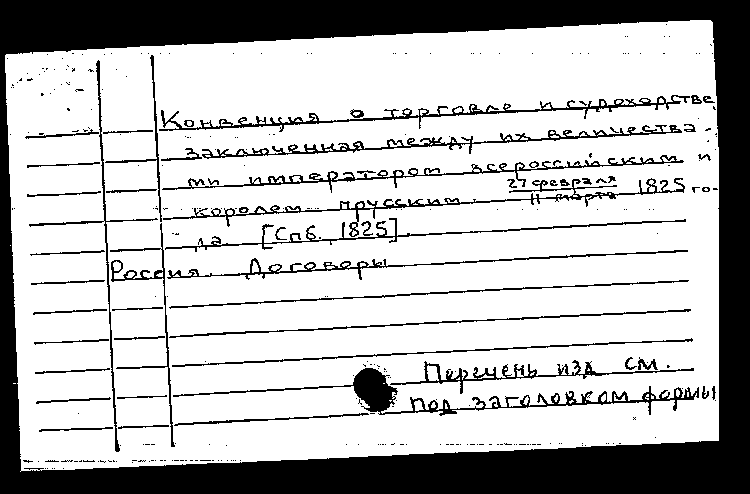 Конвенция о торговле и судоходстве,
заключенная между их величества-
ми императором всероссийским и
королем прусским 27 февраля / 11 марта 1825 го-
да. [Спб. 1825].
Россия. Договоры
Перечень изд. см.
под заголовком формы